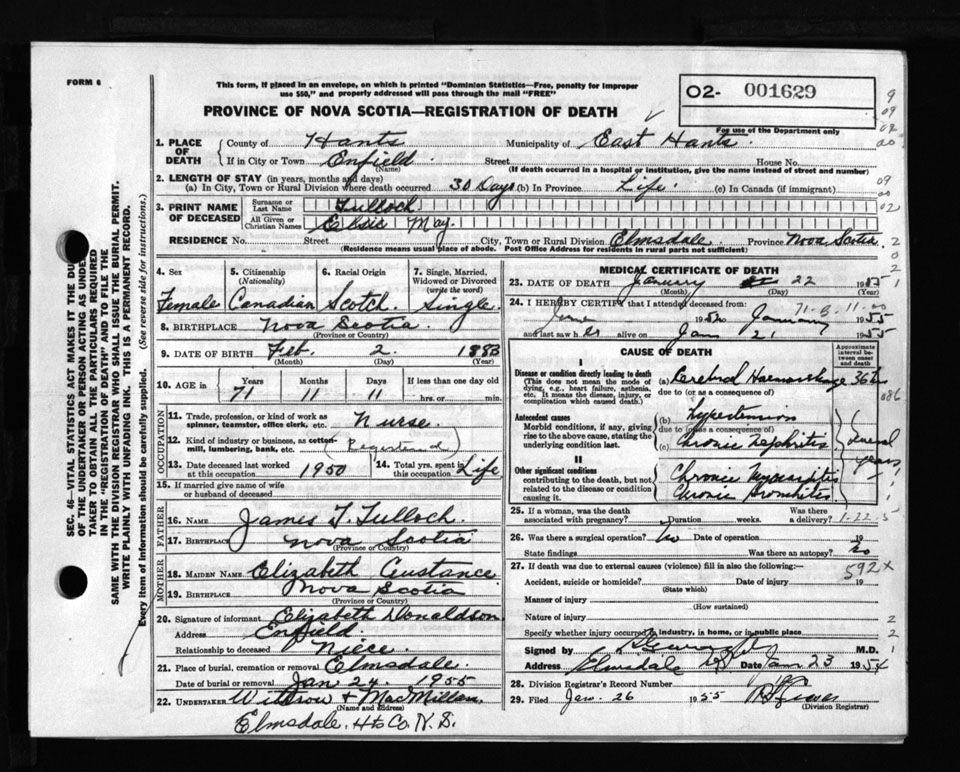 FORM 6
This form, if placed in an envelope, on which is printed "Dominion Statistics—Free, penalty for improper
use $50," and properly addressed will pass through the mail "FREE"
PROVINCE OF NOVA SCOTIA—REGISTRATION OF DEATH
02- 001629
For use of the Department only
SEC. 46—VITAL STATISTICS ACT MAKES IT THE DUTY
OF THE UNDERTAKER OR PERSON ACTING AS UNDER-
TAKER TO OBTAIN ALL THE PARTICULARS REQUIRED
IN THE "REGISTRATION OF DEATH" AND TO FILE THE
SAME WITH THE DIVISION REGISTRAR WHO SHALL ISSUE THE BURIAL PERMIT.
WRITE PLAINLY WITH UNFADING INK. THIS IS A PERMANENT RECORD.
Every item of information should be carefully supplied. (See reverse side for instructions.)
1. PLACE OF DEATH County of Hants Municipality of East Hants.
If in City or Town Enfield. Street House No.
(Name) (If death occurred in a hospital or institution, give the name instead of street and number)
2. LENGTH OF STAY (in years, months and days)
(a) In City, Town or Rural Division where death occurred 30 Days (b) In Province Life. (c) In Canada (if immigrant)
3. PRINT NAME OF DECEASED Surname or Last Name Tulloch
All Given or Christian Names Elsie May.
RESIDENCE No. Street City, Town or Rural Division Elmsdale. Province Nova Scotia.
(Residence means usual place of abode. Post Office Address for residents in rural parts not sufficient)
4. Sex 5. Citizenship (Nationality) 6. Racial Origin 7. Single, Married, Widowed or Divorced (write the word)
Female Canadian Scotch Single.
8. BIRTHPLACE Nova Scotia.
(Province or Country)
9. DATE OF BIRTH Feb. 2. 1883
(Month) (Day) (Year)
10. AGE in Years Months Days If less than one day old
71 11 11 hrs. or min.
OCCUPATION
11. Trade, profession, or kind of work as spinner, teamster, office clerk, etc. Nurse.
12. Kind of industry or business, as cotton-mill, lumbering, bank, etc. (Registered)
13. Date deceased last worked at this occupation 1950 14. Total yrs. spent in this occupation Life
15. If married give name of wife or husband of deceased
FATHER
16. NAME James T. Tulloch.
17. BIRTHPLACE Nova Scotia
(Province or Country)
MOTHER
18. MAIDEN NAME Elizabeth Custance
19. BIRTHPLACE Nova Scotia
(Province or Country)
20. Signature of informant Elizabeth Donaldson
Address Enfield.
Relationship to deceased Niece.
21. Place of burial, cremation or removal Elmsdale.
Date of burial or removal Jan 24. 1955
22. UNDERTAKER Withrow & MacMillan
(Name and Address)
Elmsdale. Hts Co. N.S.
MEDICAL CERTIFICATE OF DEATH
23. DATE OF DEATH January 22 1955
(Month) (Day) (Year)
24. I HEREBY CERTIFY that I attended deceased from
June 1952 to January 1955
and last saw her alive on Jan 21 1955
71-3-11-00
CAUSE OF DEATH
Approximate interval between onset and death
I
Disease or condition directly leading to death (a) Cerebral Haemorrhage 36 hrs
(This does not mean the mode of dying, e.g., heart failure, asthenia, etc. It means the disease, injury, or complication which caused death.)
due to (or as a consequence of)
Antecedent causes (b) Hypertension
Morbid conditions, if any, giving rise to the above cause, stating the underlying condition last.
due to (or as a consequence of)
(c) Chronic Nephritis. Several years
II
Other significant conditions contributing to the death, but not related to the disease or condition causing it.
Chronic Myocarditis
Chronic Bronchitis.
25. If a woman, was the death associated with pregnancy? Duration weeks. Was there a delivery? 1-22-5
26. Was there a surgical operation? No Date of operation 19
State findings Was there an autopsy? No
27. If death was due to external causes (violence) fill in also the following:— 592x
Accident, suicide or homicide? Date of injury 19
(State which)
Manner of injury
(How sustained)
Nature of injury
Specify whether injury occurred in industry, in home, or in public place
Signed by M.D.
Address Elmsdale NS Date Jan 23 1954
28. Division Registrar's Record Number
29. Filed Jan. 26 1955
(Division Registrar)